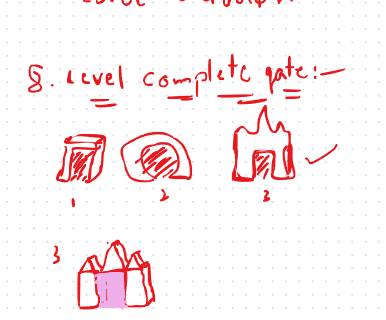 8. Level complete gate:-
1 2 3
3